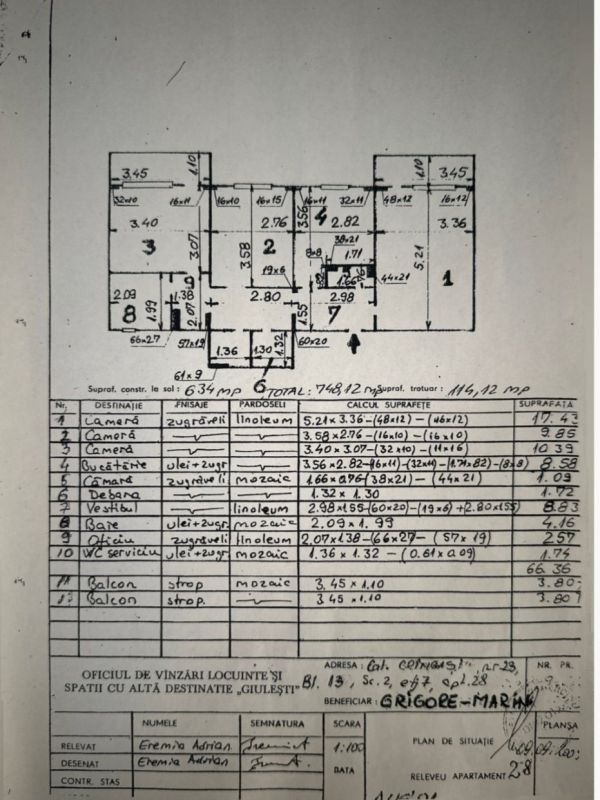 3.45
1.10
32x10
16x11
3.40
3.07
3
2.09
1.99
8
1.38
2.07
9
66x27
57x19
61x9
16x10
16x15
2.76
3.58
2
19x6
2.80
1.36
1.30
1.32
6
16x11
32x11
3.56
4
2.82
38x21
8x8
1.71
1.66
2.98
1.55
7
60x20
44x21
1.10
3.45
48x12
16x12
3.36
5.21
1
Supraf. constr. la sol: 634 mp TOTAL: 748,12 mp Supraf. trotuar: 114,12 mp
Nr. DESTINAȚIE FNISAJE PARDOSELI CALCUL SUPRAFEȚE SUPRAFAȚĂ
1 Cameră zugrăveli linoleum 5.21x3.36-(48x12)-(16x12) 17.43
2 Cameră 3.58x2.76-(16x10)-(16x10) 9.85
3 Cameră 3.40x3.07-(32x10)-(11x16) 10.39
4 Bucătărie ulei+zugr 3.56x2.82-(16x11)-(32x11)-(1.71x82)-(8x8) 8.58
5 Cămară zugrăveli mozaic 1.66x0.76-(38x21)-(44x21) 1.09
6 Debara 1.32x1.30 1.72
7 Vestibul linoleum 2.98x1.55-(60x20)-(19x6)+2.80x1.55 8.83
8 Baie ulei+zugr mozaic 2.09x1.99 4.16
9 Oficiu zugrăveli linoleum 2.07x1.38-(66x27)-(57x19) 2.57
10 WC serviciu ulei+zugr mozaic 1.36x1.32-(0.61x0.09) 1.74
66.36
11 Balcon strop mozaic 3.45x1.10 3.80
Balcon strop. 3.45x1.10 3.80
OFICIUL DE VÎNZĂRI LOCUINTE ȘI
SPATII CU ALTĂ DESTINATIE „GIULEȘTI”
ADRESA: Cal. nr 23,
Bl. 13, Sc. 2, et 7, apt. 28
BENEFICIAR: GRIGORE-MARIN
NR. PR.
NUMELE SEMNATURA SCARA
RELEVAT Eremia Adrian 1:100
DESENAT Eremia Adrian DATA
CONTR. STAS
PLAN DE SITUAȚIE
RELEVEU APARTAMENT 28
PLANȘA